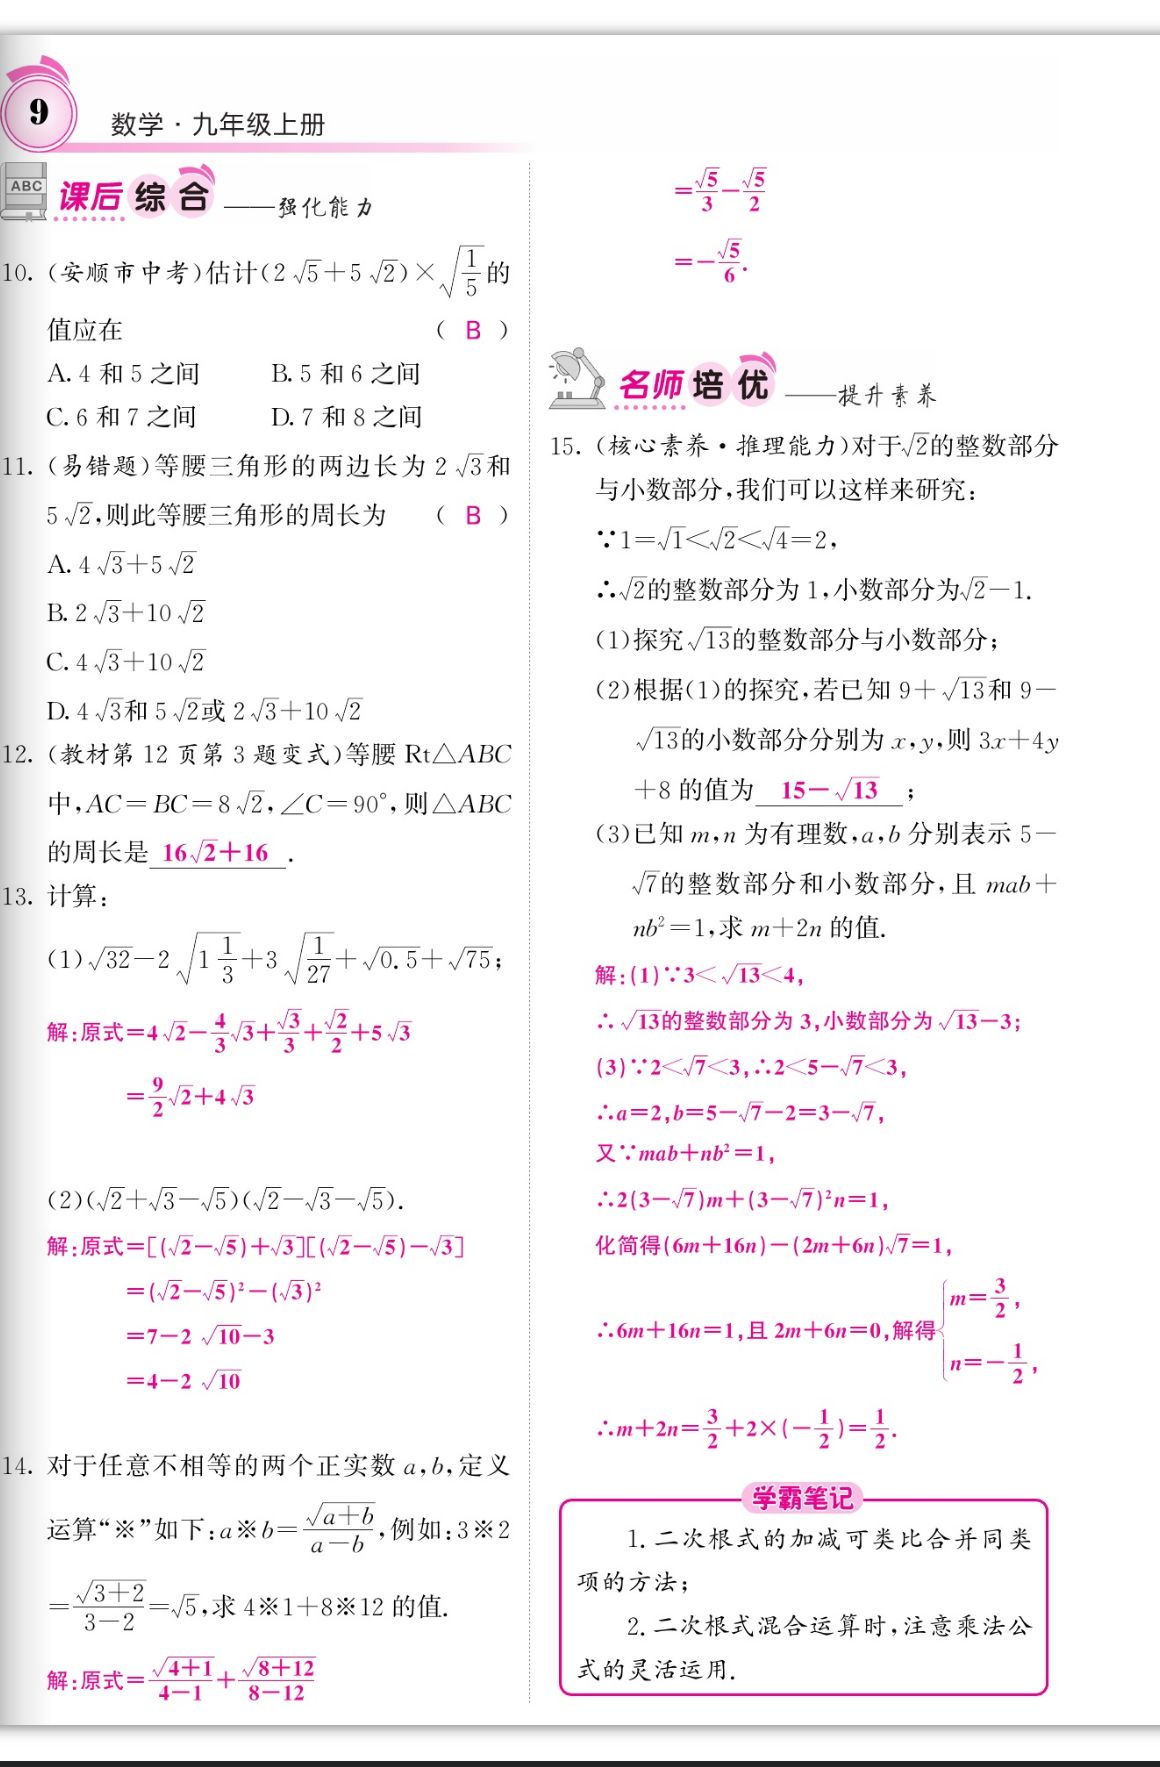 9
数学·九年级上册
ABC
课后综合——强化能力
10. (安顺市中考)估计(2√5+5√2)×√(1/5)的
值应在 ( B )
A. 4 和 5 之间 B. 5 和 6 之间
C. 6 和 7 之间 D. 7 和 8 之间
11. (易错题)等腰三角形的两边长为 2√3和
5√2,则此等腰三角形的周长为 ( B )
A. 4√3+5√2
B. 2√3+10√2
C. 4√3+10√2
D. 4√3和 5√2或 2√3+10√2
12. (教材第 12 页第 3 题变式)等腰 Rt△ABC
中,AC=BC=8√2,∠C=90°,则△ABC
的周长是 16√2+16 .
13. 计算:
(1)√32-2√(1 1/3)+3√(1/27)+√0.5+√75;
解:原式=4√2-4/3√3+√3/3+√2/2+5√3
=9/2√2+4√3
(2)(√2+√3-√5)(√2-√3-√5).
解:原式=[(√2-√5)+√3][(√2-√5)-√3]
=(√2-√5)²-(√3)²
=7-2√10-3
=4-2√10
14. 对于任意不相等的两个正实数 a,b,定义
运算“※”如下:a※b=√(a+b)/(a-b),例如:3※2
=√(3+2)/(3-2)=√5,求 4※1+8※12 的值.
解:原式=√(4+1)/(4-1)+√(8+12)/(8-12)
=√5/3-√5/2
=-√5/6.
名师培优——提升素养
15. (核心素养·推理能力)对于√2的整数部分
与小数部分,我们可以这样来研究:
∵1=√1<√2<√4=2,
∴√2的整数部分为 1,小数部分为√2-1.
(1)探究√13的整数部分与小数部分;
(2)根据(1)的探究,若已知 9+√13和 9-
√13的小数部分分别为 x,y,则 3x+4y
+8 的值为 15-√13 ;
(3)已知 m,n 为有理数,a,b 分别表示 5-
√7的整数部分和小数部分,且 mab+
nb²=1,求 m+2n 的值.
解:(1)∵3<√13<4,
∴√13的整数部分为 3,小数部分为√13-3;
(3)∵2<√7<3,∴2<5-√7<3,
∴a=2,b=5-√7-2=3-√7,
又∵mab+nb²=1,
∴2(3-√7)m+(3-√7)²n=1,
化简得(6m+16n)-(2m+6n)√7=1,
∴6m+16n=1,且 2m+6n=0,解得{m=3/2,
n=-1/2,
∴m+2n=3/2+2×(-1/2)=1/2.
学霸笔记
1. 二次根式的加减可类比合并同类
项的方法;
2. 二次根式混合运算时,注意乘法公
式的灵活运用.